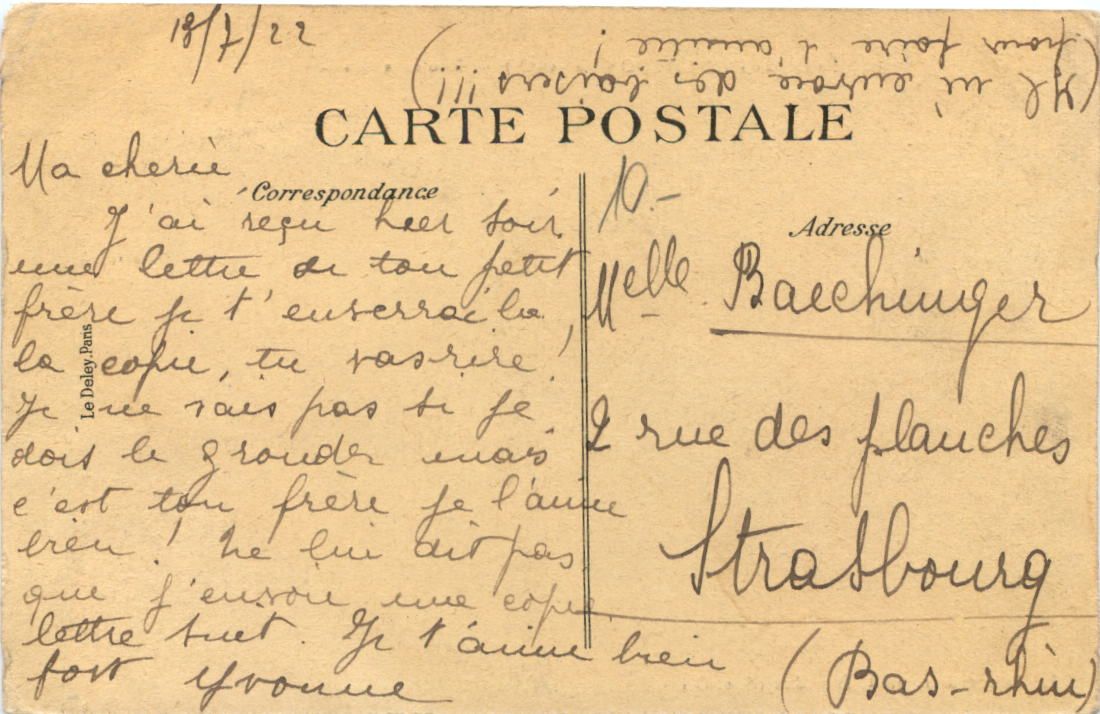 18/7/22
(Il m'envoie des baisers !!!)
pour faire l'amitié !
CARTE POSTALE
Ma cherie
Correspondance
J'ai reçu hier soir
une lettre de ton petit
frère je t'enverrai la
la copie, tu vas rire !
Je ne sais pas si je
dois le gronder mais
c'est ton frère je l'aime
bien ! Ne lui dit pas
que j'envoie une copie
lettre suit. Je t'aime bien
fort Yvonne
Le Deley, Paris
Adresse
Melle Baechinger
2 rue des planches
Strasbourg
(Bas-rhin)